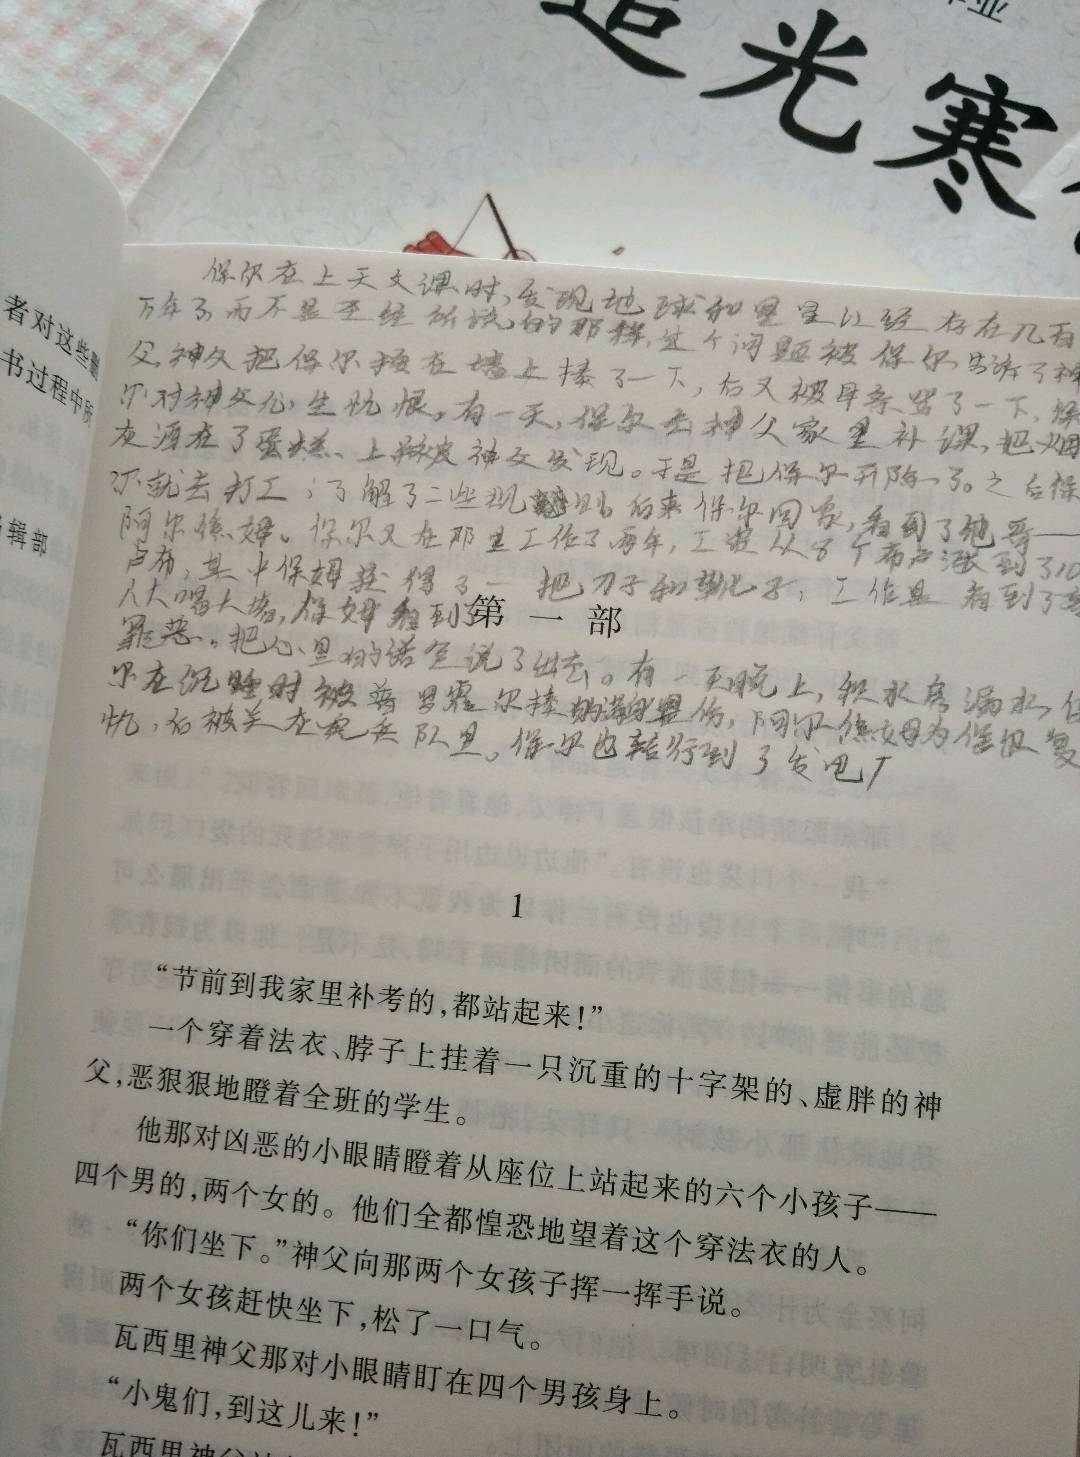 追光寒
者对这些
书过程中所
辑部
保尔在上天文课时,发现地球和星星已经存在几百
万年了,而不是圣经所说的那样,这个问题被保尔告诉了神
父,神父把保尔按在墙上揍了一下,后又被母亲骂了一下,保
尔对神父心生仇恨。有一天,保尔去神父家里补课,把烟
灰洒在了蛋糕上被神父发现。于是把保尔开除了。之后保
尔就去打工,了解了一些规则后来保尔回家,看到了他哥——
阿尔焦姆。保尔又在那里工作了两年,工资从8个布卢涨到了10
卢布,其中保姆获得了一把刀子和靴子,工作且看到了
人大喝大赌,保姆看到
罪恶。把心里的话全说了出去。有一天晚上,积水房漏水,
尔在沉睡时被普罗霍尔揍的满身是伤,阿尔焦姆为保报复
仇,后被关在宪兵队里。保尔也转行到了发电厂
第一部
1
“节前到我家里补考的,都站起来!”
一个穿着法衣、脖子上挂着一只沉重的十字架的、虚胖的神
父,恶狠狠地瞪着全班的学生。
他那对凶恶的小眼睛瞪着从座位上站起来的六个小孩子——
四个男的,两个女的。他们全都惶恐地望着这个穿法衣的人。
“你们坐下。”神父向那两个女孩子挥一挥手说。
两个女孩赶快坐下,松了一口气。
瓦西里神父那对小眼睛盯在四个男孩身上。
“小鬼们,到这儿来!”
瓦西里神父